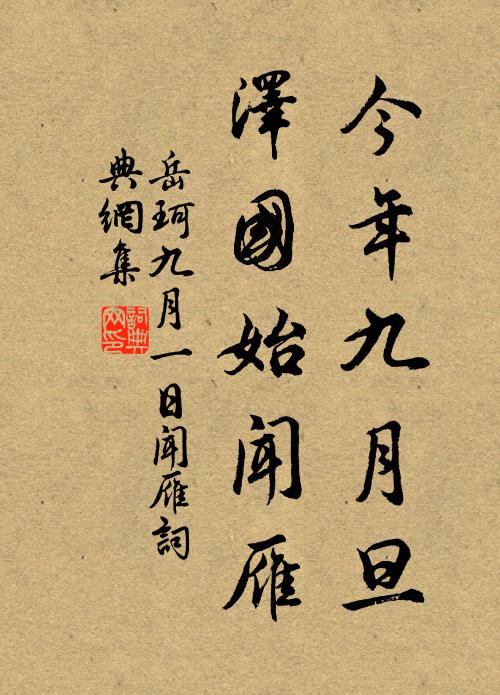 今年九月旦
澤國始聞雁
岳珂九月一日聞雁詞
典網集
詞典
网印